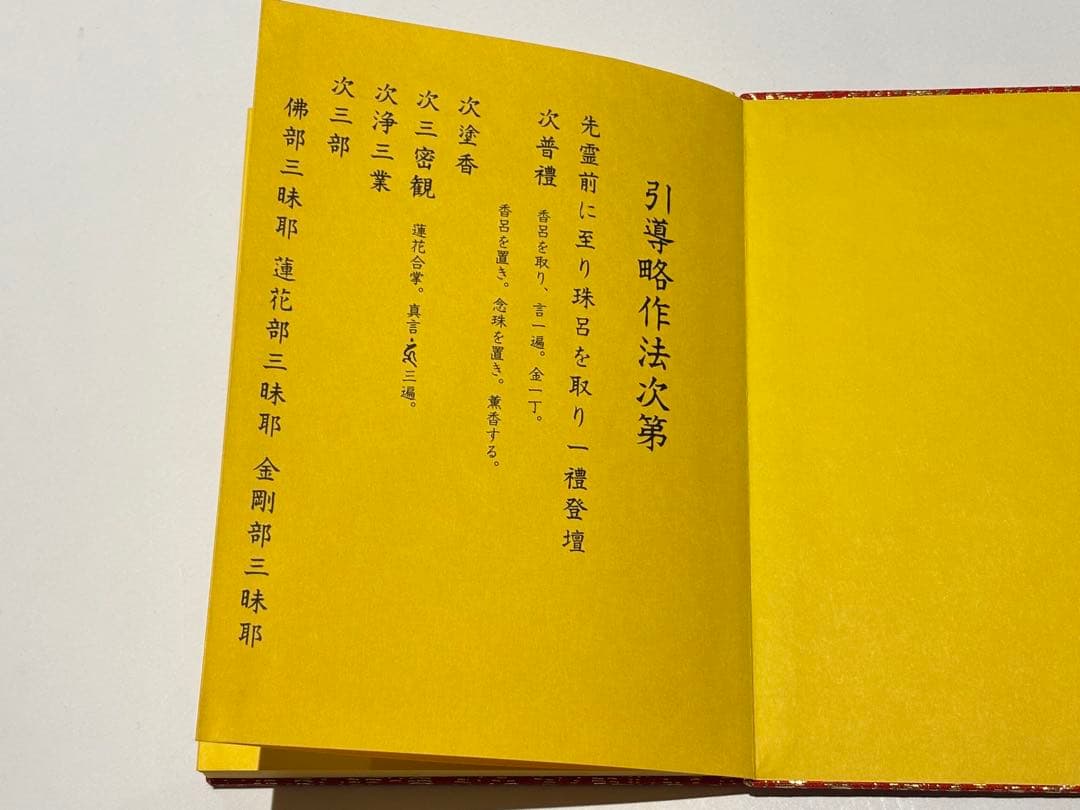 引導略作法次第
先霊前に至り珠呂を取り一禮登壇
次普禮 香呂を取り、言一遍。金一丁。
香呂を置き。念珠を置き。薫香する。
次塗香
次三密観 蓮花合掌。真言・三遍。
次浄三業
次三部
佛部三昧耶 蓮花部三昧耶 金剛部三昧耶